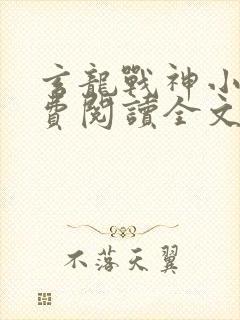 玄龍戰神小
費閱讀全文
不落天翼